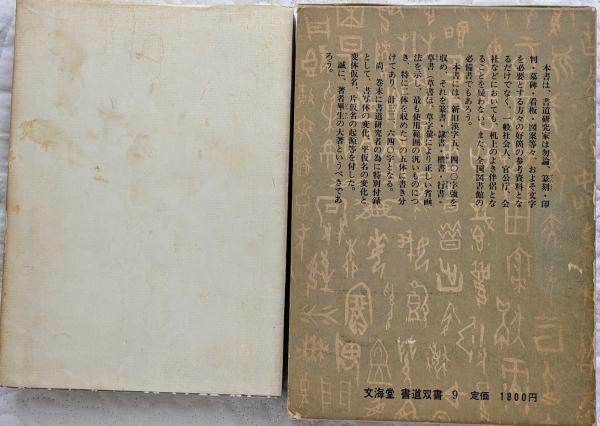 本書は、書道研究家は勿論、篆刻・印
判・墓碑・看板・図案等々、およそ文字
を必要とする方々の好箇の参考資料とな
るだけでなく、一般社会人、官公庁、会
社などにおいても、机上のよき伴侶とな
ることを疑わない。また、全国図書館の
必備書でもあろう。
本書には、新旧漢字五、四〇〇字強を
収め、それを篆書・隷書・楷書・行書・
草書（草書は、草字彙により正しい省画
法を示し、最も使用範囲の汎いものにつ
き、特に二体を収めた）の五体に書き分
けてあり、計三三、六四〇字となる。
尚、巻末に書道研究者の為に特別付録
として、書写体の変化、平仮名の変化と
変体仮名、片仮名の起源等を付した。
誠に、著者畢生の大著というべきであ
ろう。
文海堂 書道双書 9 定価 1800円